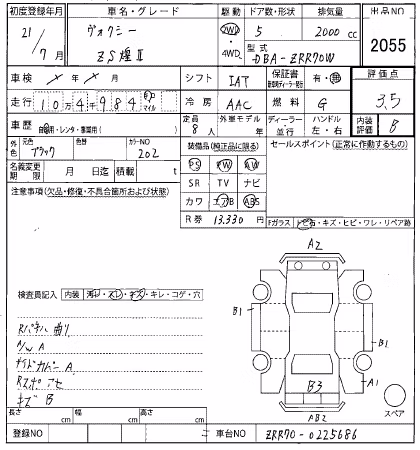 初度登録年月 車名・グレード 駆動 ドア数・形状 排気量 出品NO
21/7月 ヴォクシー 2WD 5 2000cc
ZS煌Ⅱ 4WD 型式 DBA-ZRR70W 2055
車検 シフト IAT 保証書 有・無 評価点
走行 10万4千984 km マイル 冷房 AAC 燃料 G 3.5
車歴 自家用・レンタ・事業用( ) 定員 8人 外車モデル 年 ディーラー 並行 ハンドル 左・右 内装評価 B
外色 元色 ブラック 色替 カラーNO 202 装備品(純正品に限る) セールスポイント(正常に作動するもの)
名義変更期限 月 日迄 積載 t PS PW AW
注意事項(欠品・修復・不具合箇所および状態) SR TV ナビ
カワ エアB ABS
R券 13,330円 Fガラス トビ石・キズ・ヒビ・ワレ・リペア跡
A2
検査員記入 内装 汚レ・スレ・キズ・キレ・コゲ・穴
B1 B1
Rパネル曲り
A/W A
サイドカバーA
Rスポアセ
キズB
B3 A1
AB2 スペア
長さ cm 幅 cm 高さ cm
登録NO 車台NO ZRR70-0225686